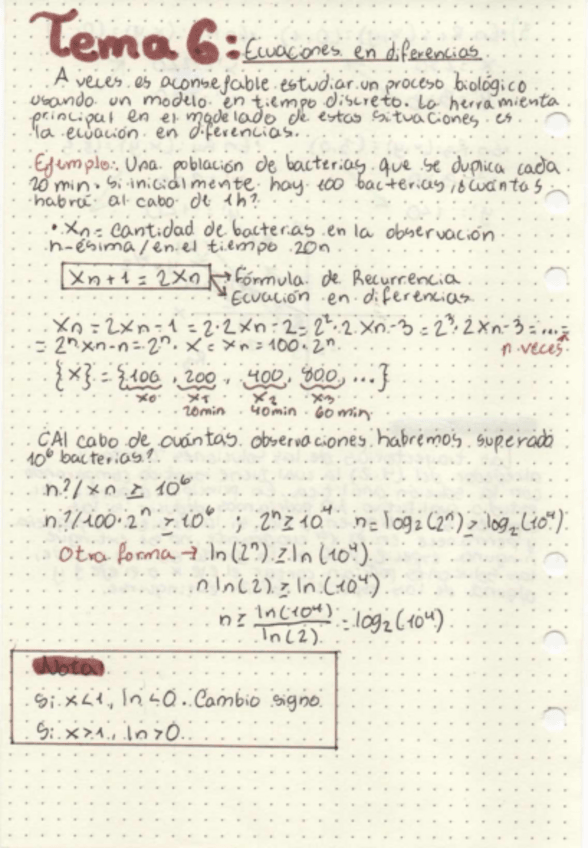 Tema 6: Ecuaciones en diferencias
A veces es aconsejable estudiar un proceso biológico
usando un modelo en tiempo discreto. La herramienta
principal en el modelado de estas situaciones es
la ecuación en diferencias.
Ejemplo: Una población de bacterias que se duplica cada
20 min. Si inicialmente hay 100 bacterias, ¿cuántas
habrá al cabo de 1h?
• Xn = cantidad de bacterias en la observación
n-ésima / en el tiempo 20n
Xn+1 = 2Xn → Fórmula de Recurrencia
→ Ecuación en diferencias
Xn = 2Xn-1 = 2·2Xn-2 = 2²·2·Xn-3 = 2³·2Xn-3 = ... =
= 2ⁿxn-n = 2ⁿ·X = Xn = 100·2ⁿ n veces
{X} = {100, 200, 400, 800, ...}
x0 x1 x2 x3
20min 40min 60min
¿Al cabo de cuántas observaciones habremos superado
10⁶ bacterias?
n?/xn ≥ 10⁶
n?/100·2ⁿ ≥ 10⁶ ; 2ⁿ ≥ 10⁴ n = log₂(2ⁿ) ≥ log₂(10⁴)
Otra forma → ln(2ⁿ) ≥ ln(10⁴)
n ln(2) ≥ ln(10⁴)
n ≥ ln(10⁴)/ln(2) = log₂(10⁴)
Nota
Si x<1, ln<0. Cambio signo.
Si x>1, ln>0.